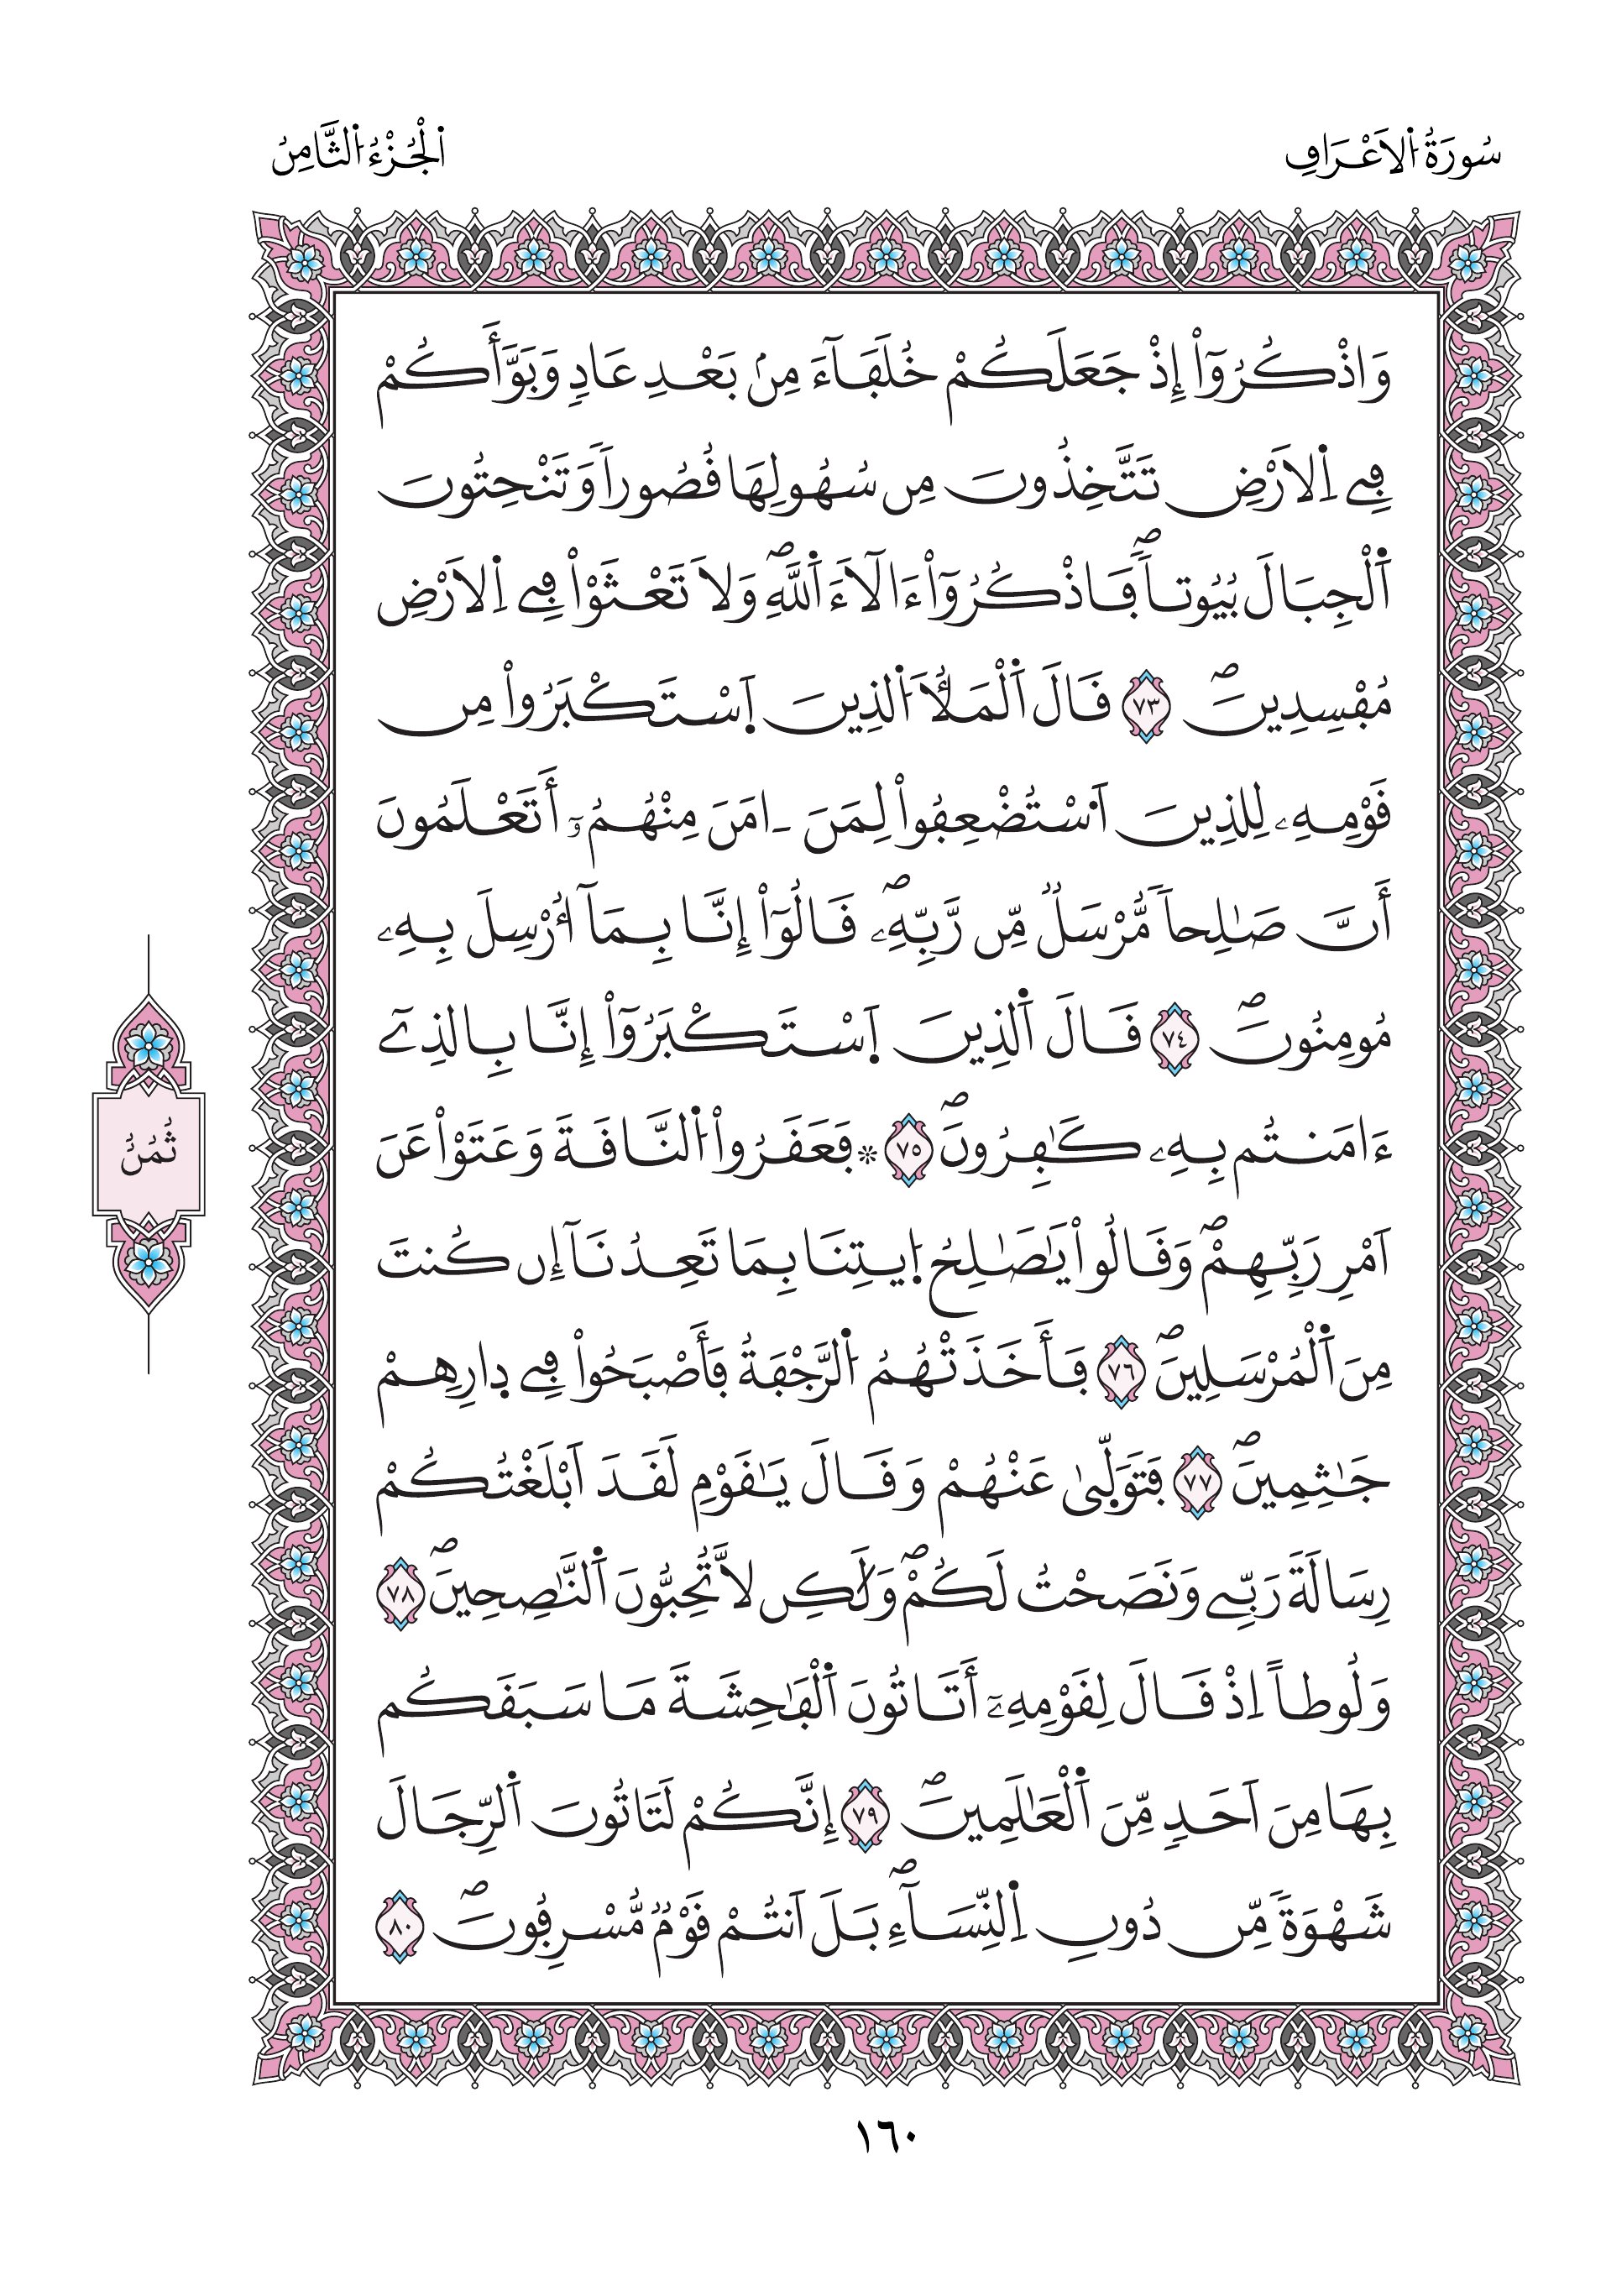 سُورَةُ اُ۬لَاعْرَافِ
اَ۬لْجُزْءُ اُ۬لثَّامِنُ
وَاذْكُرُوٓاْ إِذْ جَعَلَكُمْ خُلَفَآءَ مِنۢ بَعْدِ عَادٖ وَبَوَّأَكُمْ
فِے اِ۬لَارْضِ تَتَّخِذُونَ مِن سُهُولِهَا قُصُوراٗ وَتَنْحِتُونَ
اَ۬لْجِبَالَ بُيُوتاٗۖ فَاذْكُرُوٓاْ ءَالَآءَ اَ۬للَّهِۖ وَلَا تَعْثَوْاْ فِے اِ۬لَارْضِ
مُفْسِدِينَۖ ٧٣ قَالَ اَ۬لْمَلَأُ اُ۬لذِينَ اَ۪سْتَكْبَرُواْ مِن
قَوْمِهِۦ لِلذِينَ اَ۟سْتُضْعِفُواْ لِمَنَ ـ امَنَ مِنْهُمُۥٓ أَتَعْلَمُونَ
أَنَّ صَٰلِحاٗ مُّرْسَلٞ مِّن رَّبِّهِۦۖ قَالُوٓاْ إِنَّا بِمَآ أُرْسِلَ بِهِۦ
مُومِنُونَۖ ٧٤ قَالَ اَ۬لذِينَ اَ۪سْتَكْبَرُوٓاْ إِنَّا بِالذِےٓ
ءَامَنتُم بِهِۦ كَٰفِرُونَۖ ٧٥ ۞ فَعَقَرُواْ اُ۬لنَّاقَةَ وَعَتَوْاْ عَنَ
ثُمُنُ
اَمْرِ رَبِّهِمْۖ وَقَالُواْ يَٰصَٰلِحُ اُ۪يتِنَا بِمَا تَعِدُنَآ إِن كُنتَ
مِنَ اَ۬لْمُرْسَلِينَۖ ٧٦ فَأَخَذَتْهُمُ اُ۬لرَّجْفَةُ فَأَصْبَحُواْ فِے د۪ارِهِمْ
جَٰثِمِينَۖ ٧٧ فَتَوَلّ۪ىٰ عَنْهُمْ وَقَالَ يَٰقَوْمِ لَقَدَ اَبْلَغْتُكُمْ
رِسَالَةَ رَبِّے وَنَصَحْتُ لَكُمْۖ وَلَٰكِن لَّا تُحِبُّونَ اَ۬لنَّٰصِحِينَۖ ٧٨
وَلُوطاً اِذْ قَالَ لِقَوْمِهِۦٓ أَتَاتُونَ اَ۬لْفَٰحِشَةَ مَا سَبَقَكُم
بِهَا مِنَ اَحَدٖ مِّنَ اَ۬لْعَٰلَمِينَۖ ٧٩ إِنَّكُمْ لَتَاتُونَ اَ۬لرِّجَالَ
شَهْوَةٗ مِّن دُونِ اِ۬لنِّسَآءِۖ بَلَ اَنتُمْ قَوْمٞ مُّسْرِفُونَۖ ٨٠
١٦٠